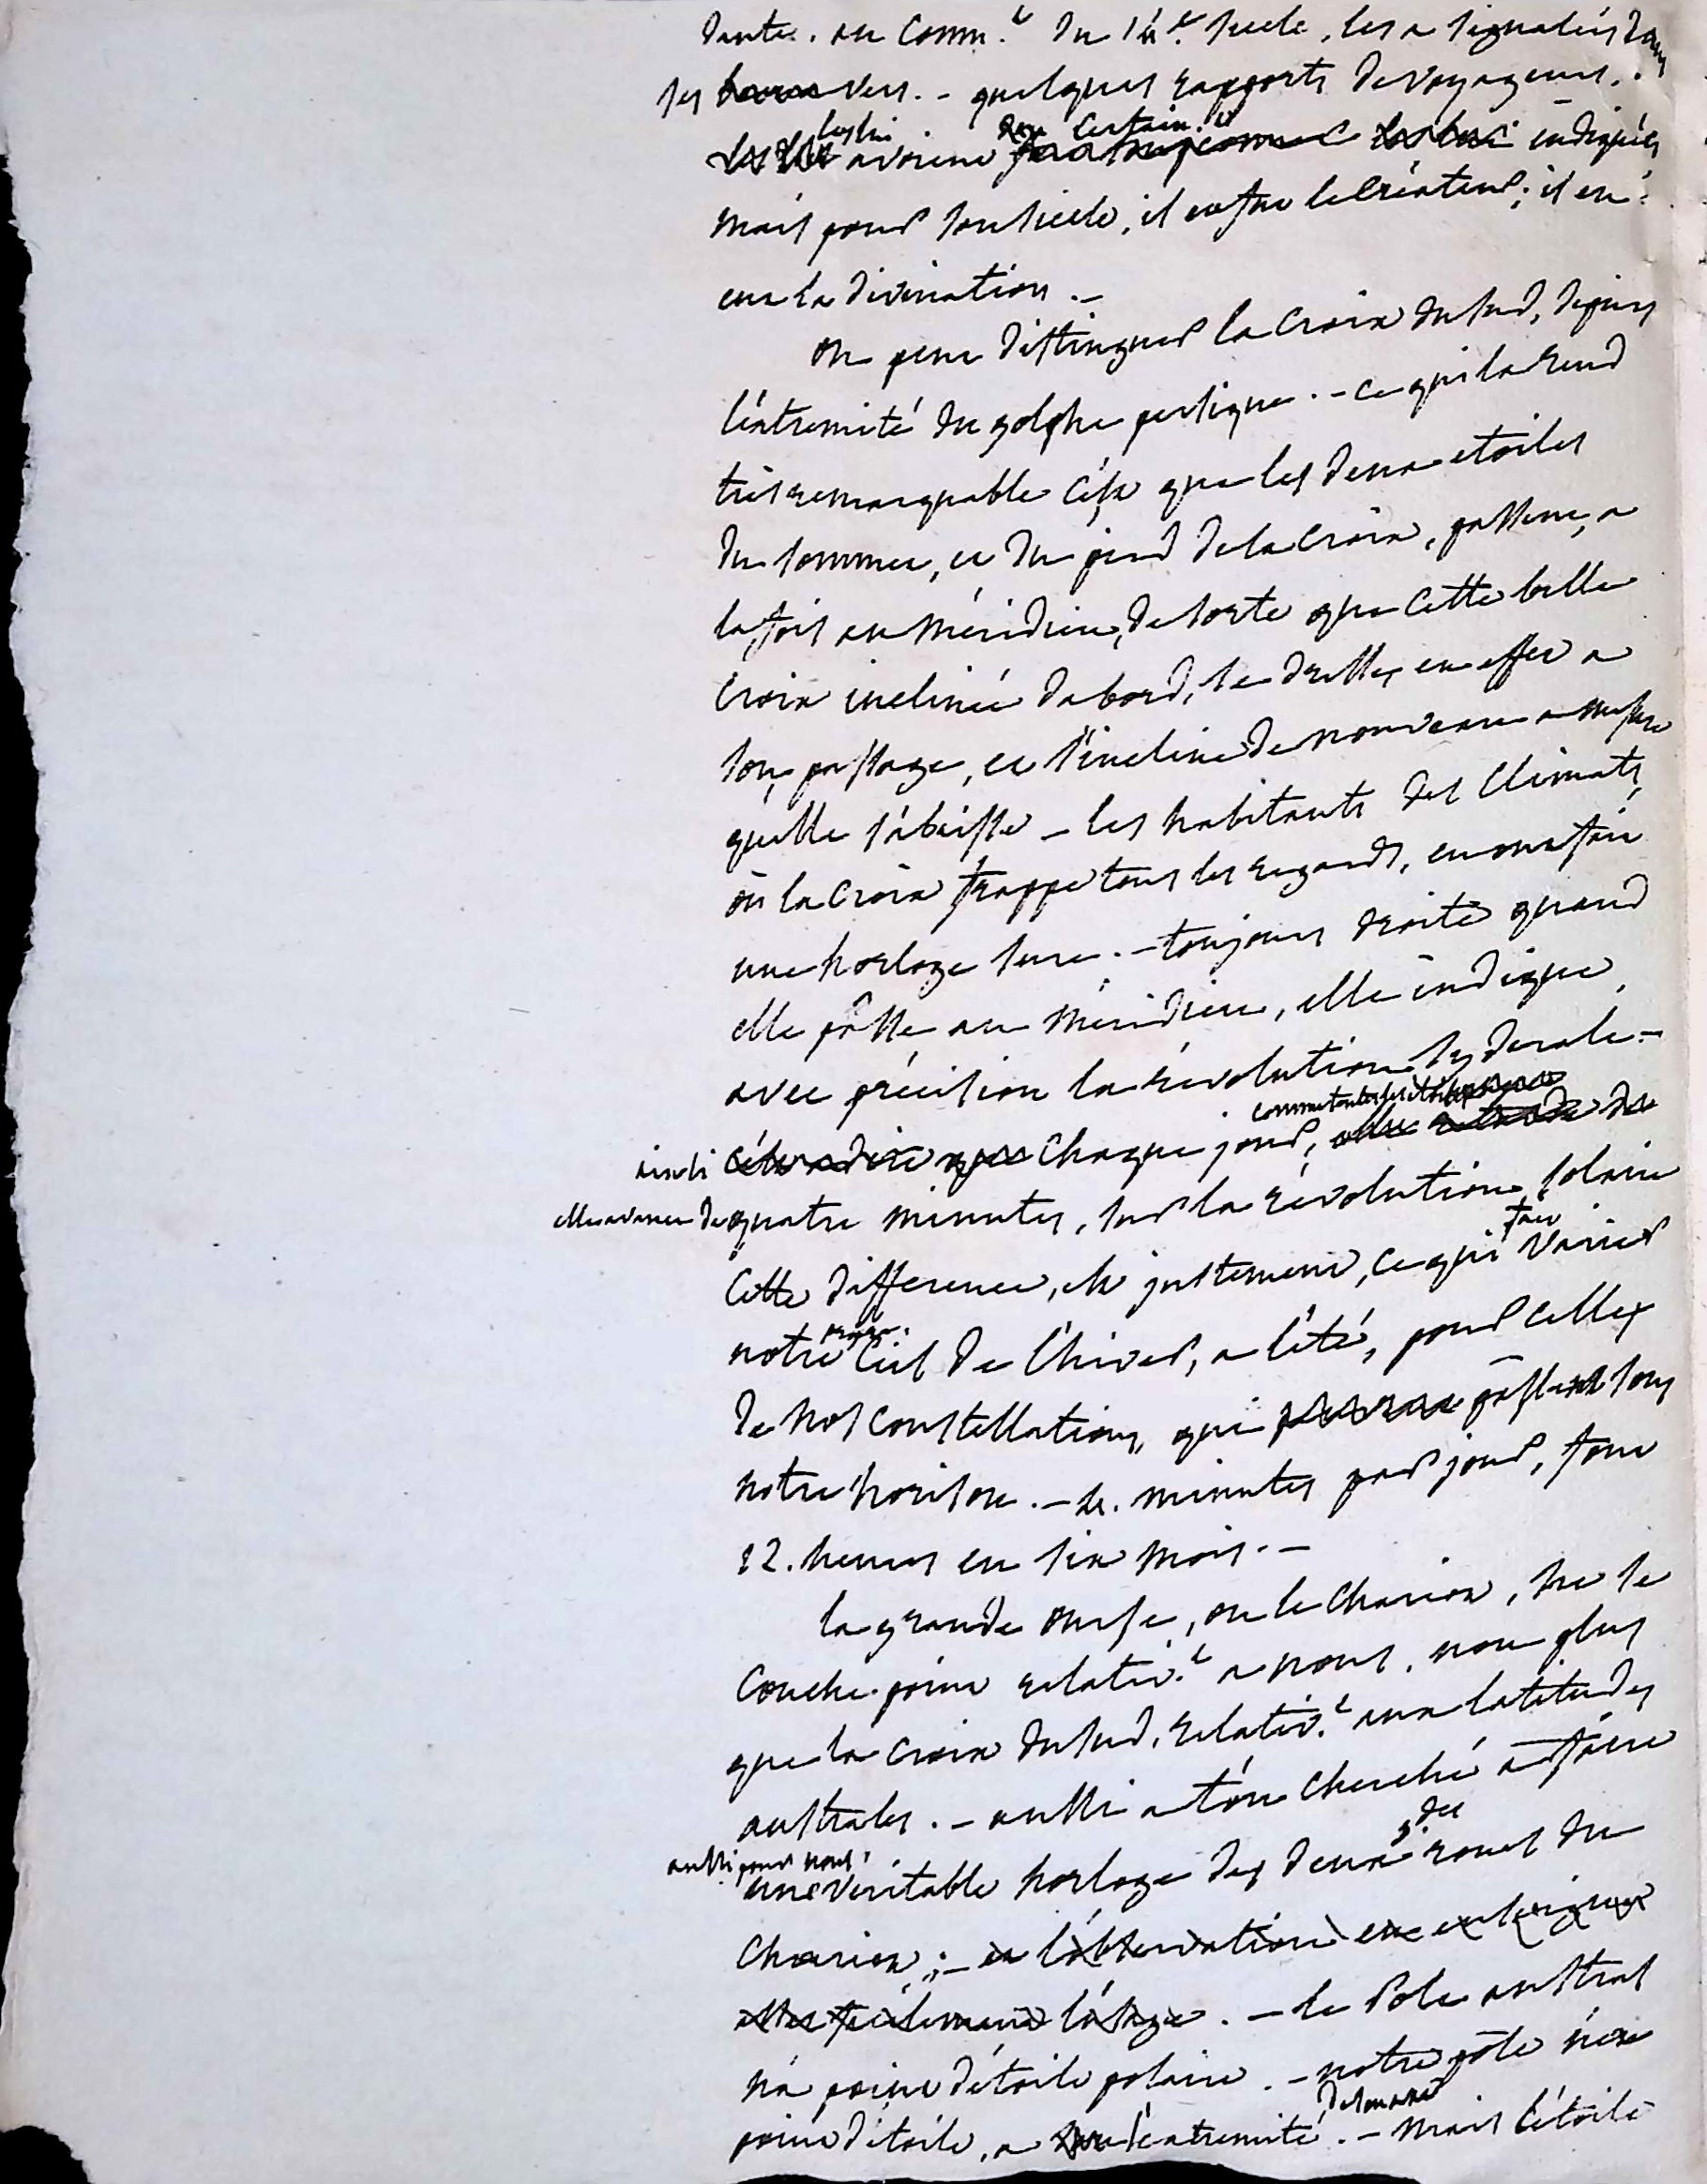 Dante. au comm.t du 14e. siecle, les a signalés dans
ses vers. - quelques rapports de voyageurs,
les lui avoient indiqués
mais pour son siecle, il en fut le créateur; il en
eut la divination. -
on peut distinguer la croix du sud, depuis
l'éxtremité du golphe persique. - ce qui la rend
très remarquable c'est que les deux etoiles
du sommet, et du pied de la croix, passent, a
la fois au méridien, de sorte que cette belle
croix inclinée dabord, se dresse en effet a
son passage, et s'incline de nouveau a mesure
quelle s'abaisse - les habitants des climats,
où la croix frappe tous les regards, en ont fait
une horloge sure. - toujours droite quand
elle passe au méridien, elle indique,
avec précision la révolution syderale. -
ainsi chaque jour, comme toutes les étoiles
elle avance de quatre minutes, sur la révolution solaire
cette difference, est justement, ce qui fait varier
notre ciel de l'hiver, a l'été, pour celles
de nos constellations, qui passent sous
notre horison. - 4. minutes par jour, font
12. heures en six mois. -
la grande ourse, ou le chariot, ne se
couche point relativ.t a nous, non plus
que la croix du sud, relativ.t aux latitudes
australes. - aussi a t'on cherché a faire
aussi pour nous
une véritable horloge des deux g.des roues du
chariot; - et l'observation en enseigne
assez facilement l'usage. - le Pole austral
n'a point d'étoile polaire. - notre pôle n'a
point d'étoile, a l'éxtremité. - mais l'étoile